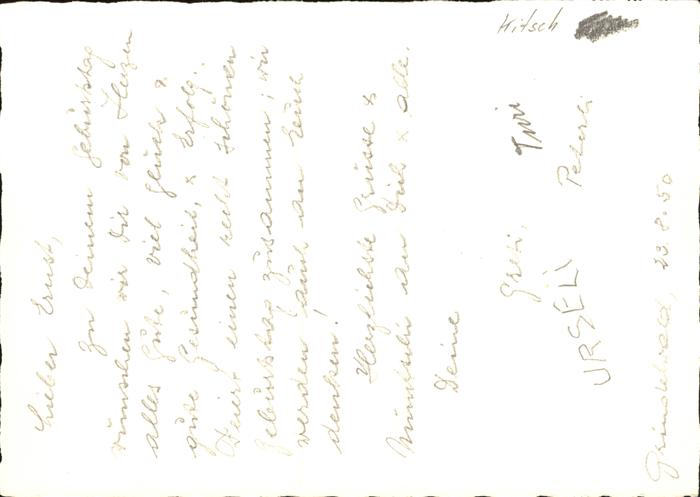 Kitsch
Lieber Ernst,
Zu Deinem Geburtstag
wünschen wir Dir von Herzen
alles Gute, viel Glück &
gute Gesundheit, & Erfolg.
Feiert einen recht schönen
Geburtstag zusammen; wir
werden auch an Euch
denken!
Herzlichste Grüsse &
Müntschi an Dich & alle.
Deine
Greti,
URSELI
Peterli
Grindelwald, 23.8.50